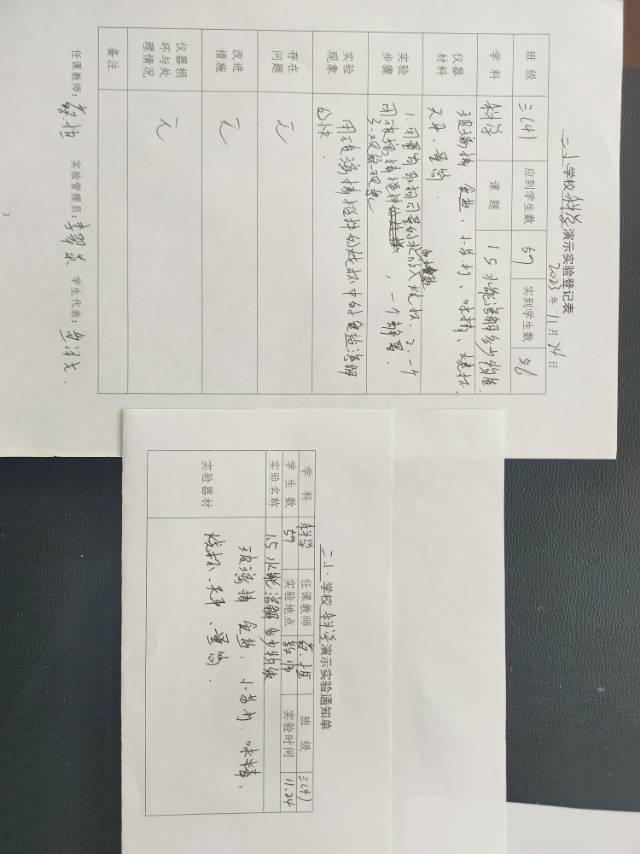 二小学校科学演示实验登记表
2023年11月24日
班级 三(4) 应到学生数 57 实到学生数 56
学科 科学 课题 1.5水能溶解多少物质
仪器材料 玻璃棒、食盐、小苏打、味精、烧杯、
天平、量筒
实验步骤 1.用量筒
2.一个
用玻璃棒搅拌 一个静置.
3.观察现象
实验现象 用玻璃棒搅拌的烧杯中的食盐溶解
的快.
存在问题 无
改进措施 无
仪器损坏与处理情况 无
备注
任课教师: 实验管理员: 学生代表:
二小学校科学演示实验通知单
学科 科学 任课教师 班级 三(4)
学生数 57 实验地点 教师 实验时间 11.24
实验名称 1.5水能溶解多少物质
实验器材 玻璃棒 食盐、小苏打、味精、
烧杯、天平、量筒.